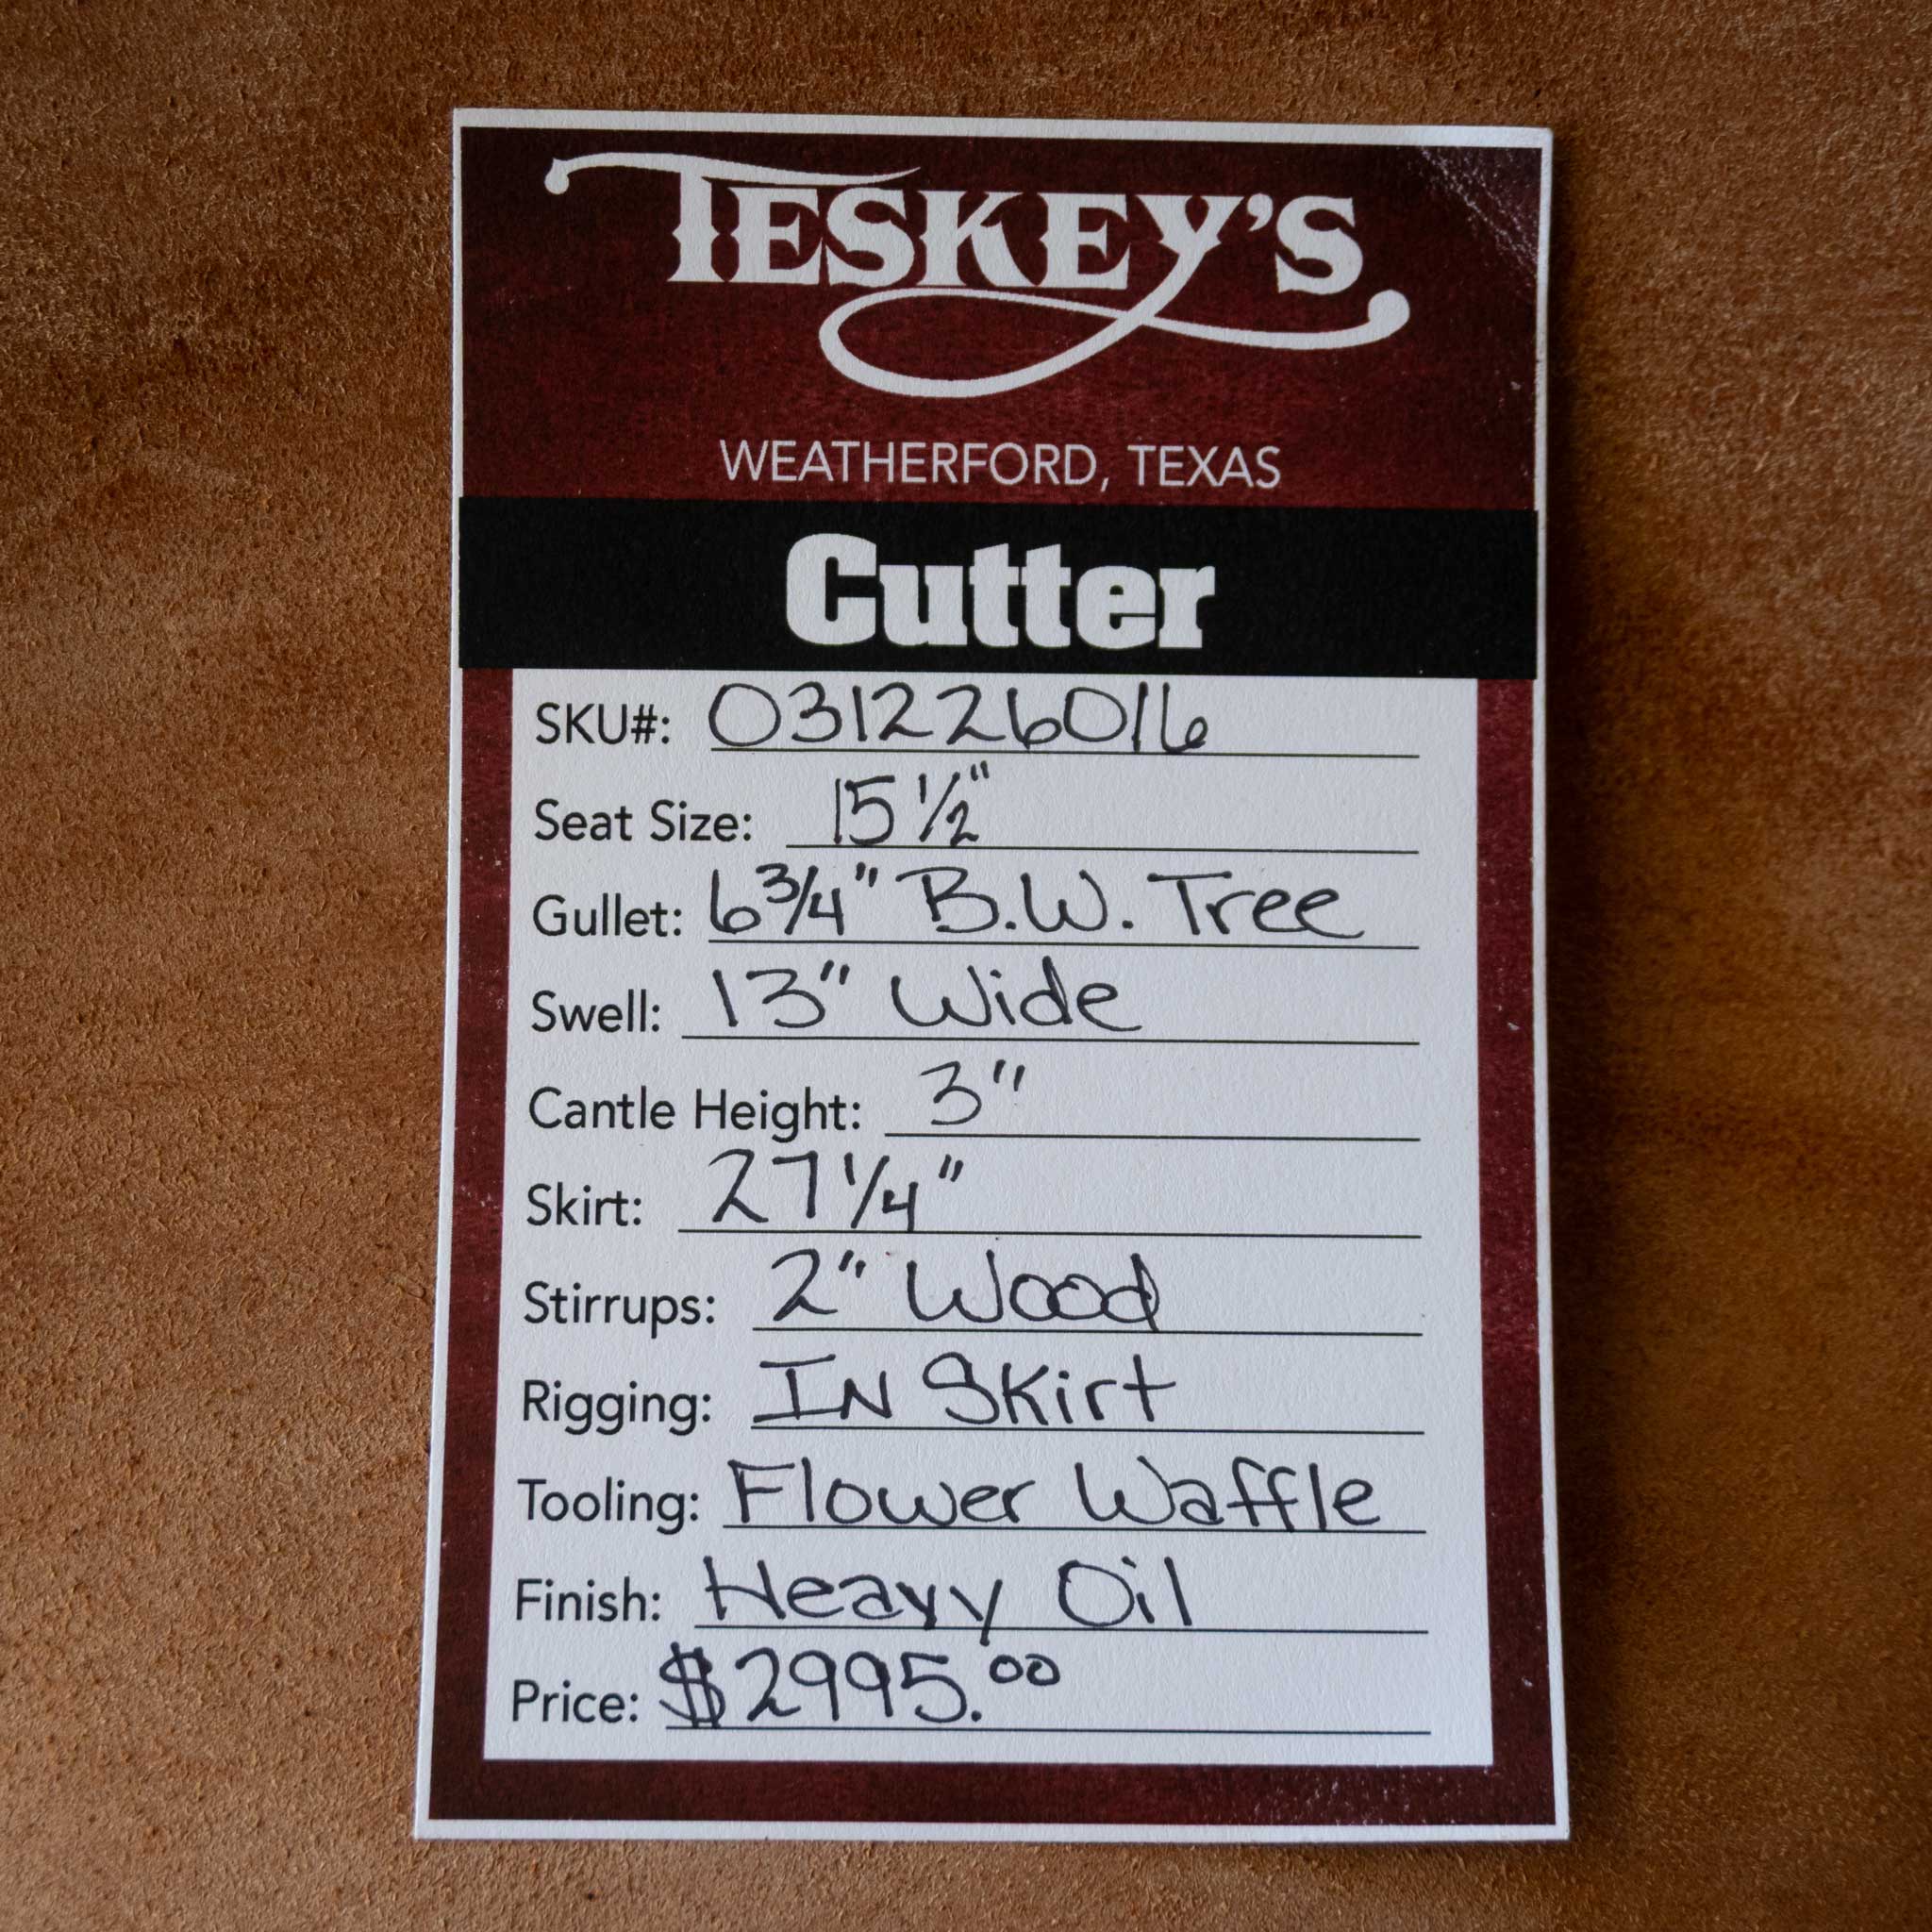 TESKEY'S
WEATHERFORD, TEXAS
Cutter
SKU#: 031226016
Seat Size: 15 1/2"
Gullet: 6 3/4" B.W. Tree
Swell: 13" Wide
Cantle Height: 3"
Skirt: 27 1/4"
Stirrups: 2" Wood
Rigging: IN Skirt
Tooling: Flower Waffle
Finish: Heavy Oil
Price: $2995.00